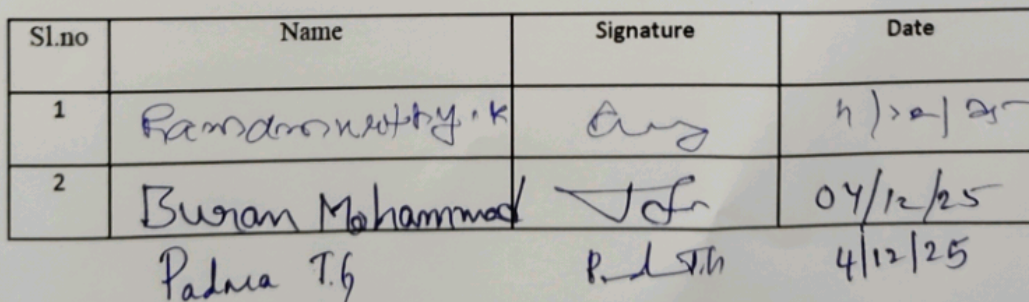 Sl.no Name Signature Date
1 Ramamurthy.K
2 Buran Mohammad 04/12/25
Padma T.G 4/12/25